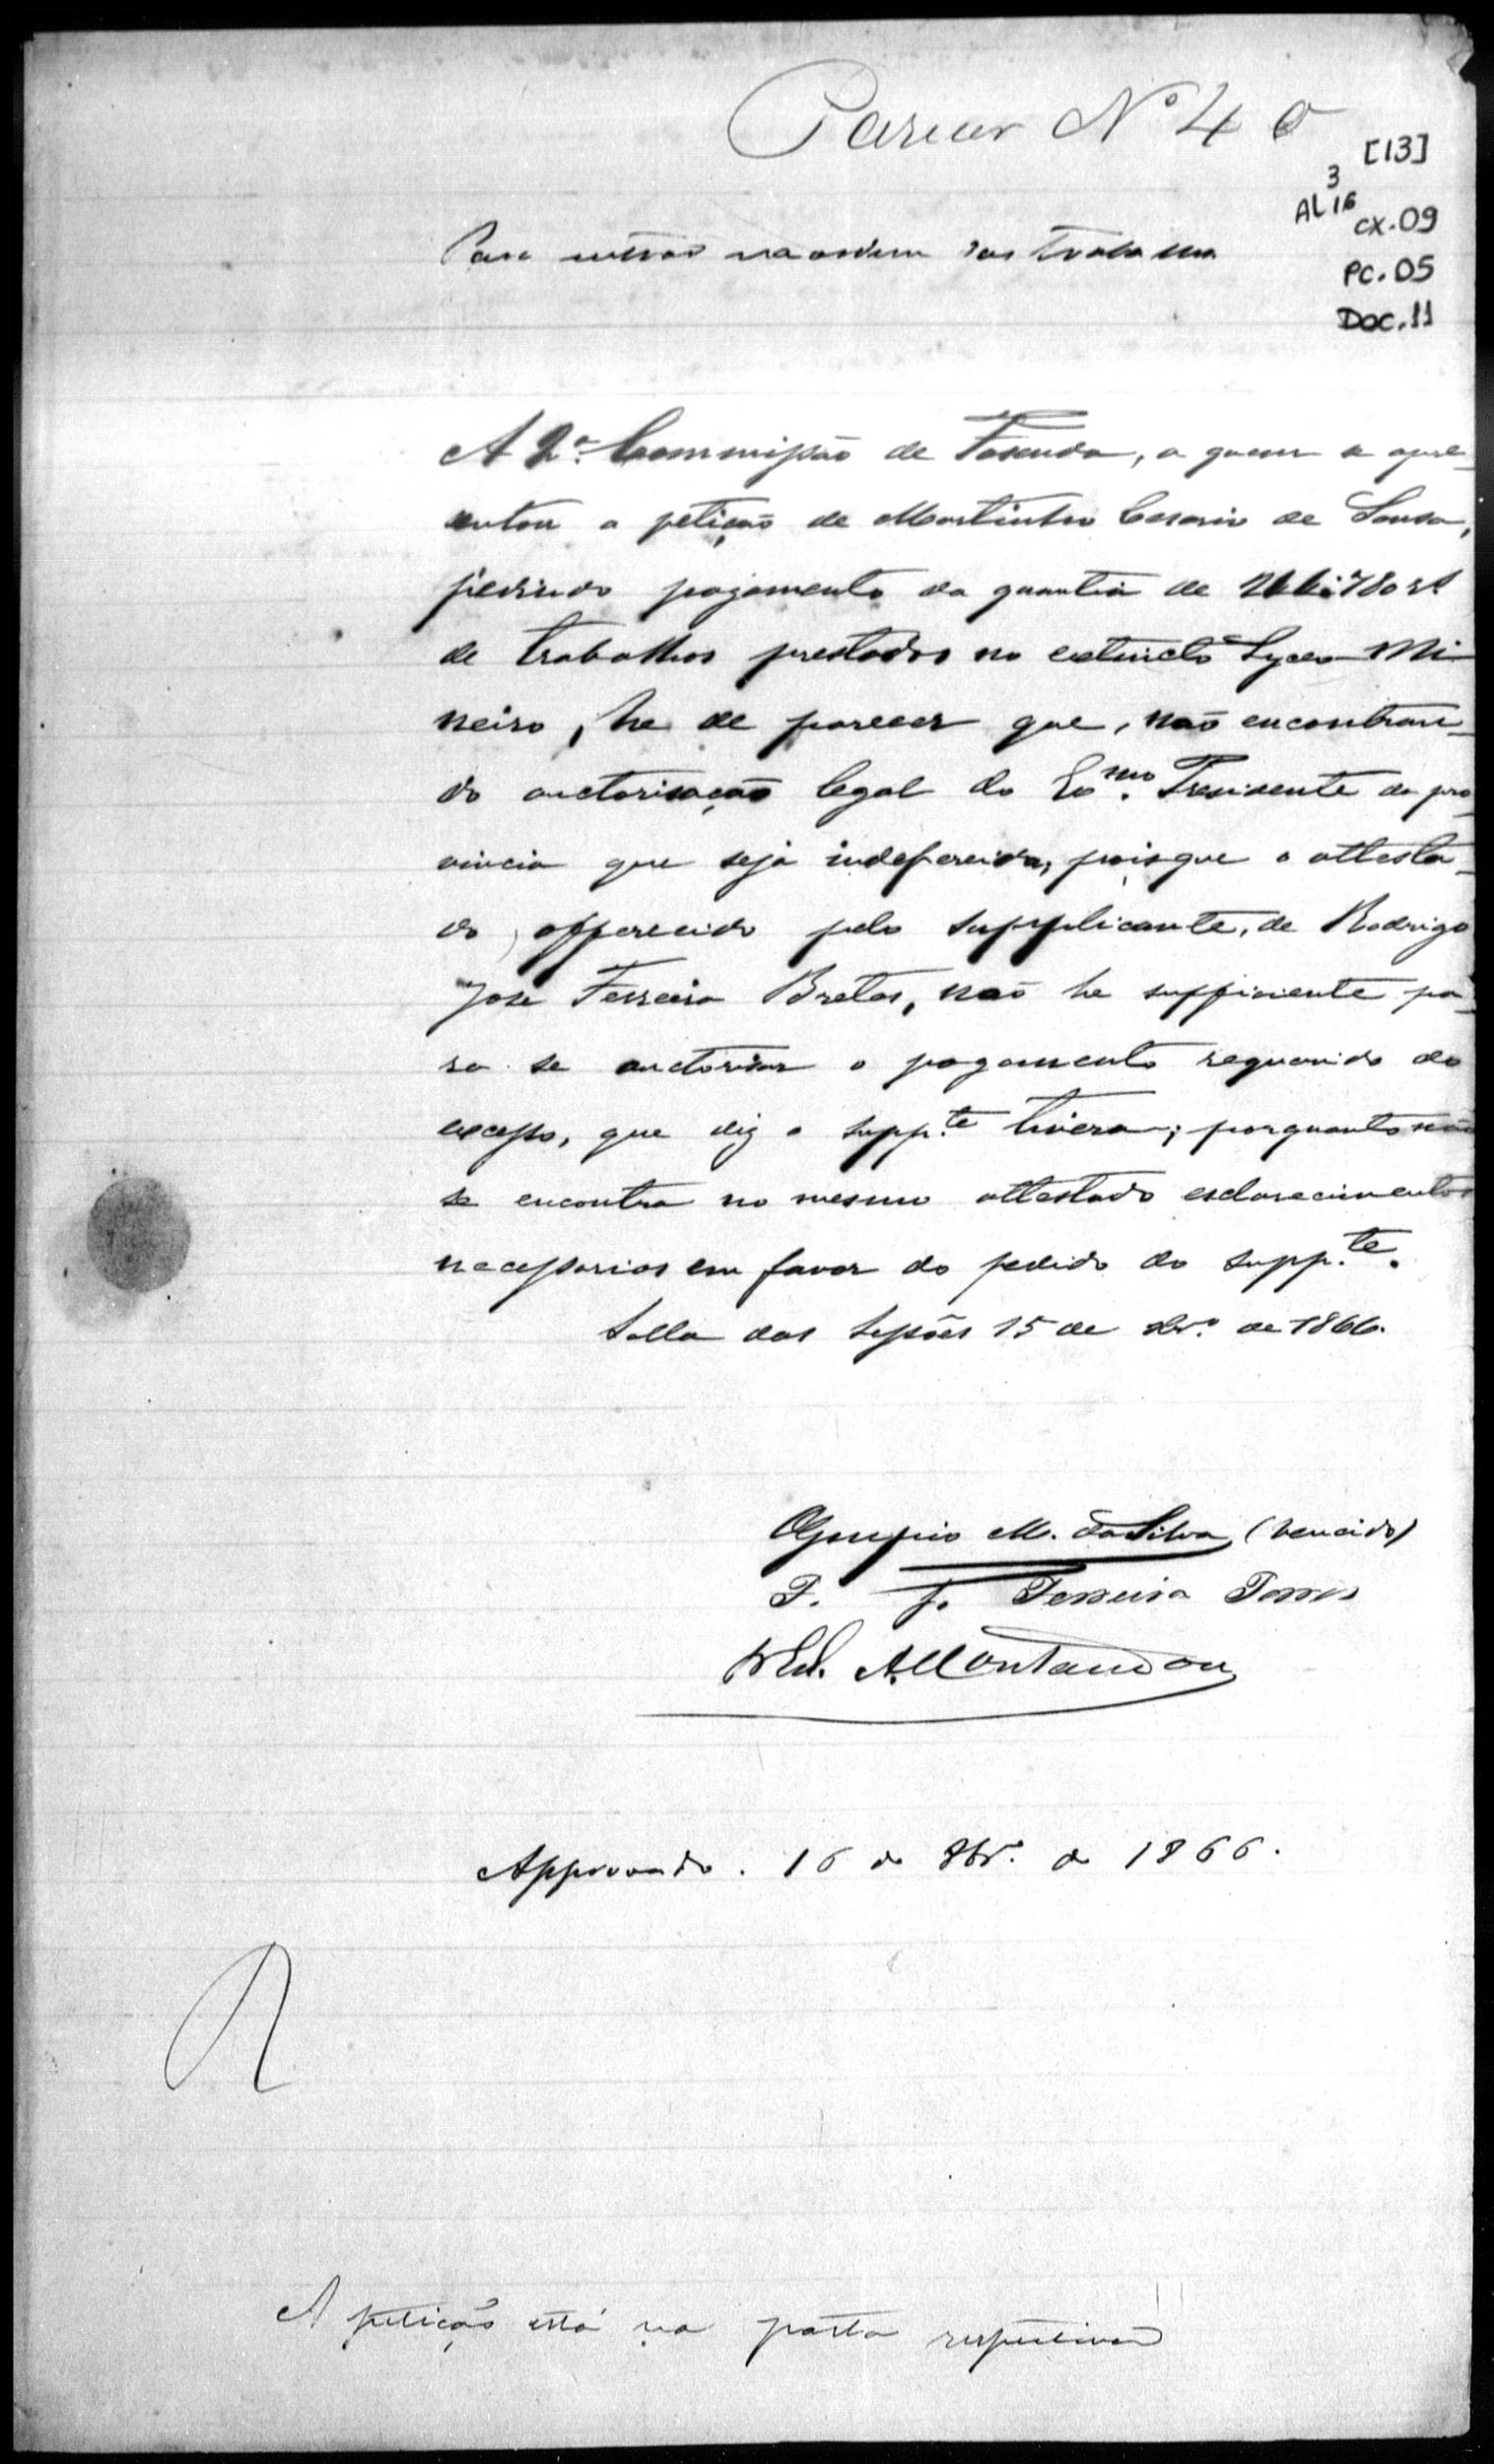 Parecer Nº 40
[13]
3
AL 16
CX. 09
PC. 05
Doc. 11
Para entrar na ordem dos trabalhos
A 2.ª Commissão de Fasenda, a quem se apre-
sentou a petição de Martinho Cesario de Sousa,
pedindo pagamento da quantia de
de trabalhos prestados no extincto Lyceo Mi-
neiro, he de parecer que, não encontran-
do auctorisação legal do Ex.mo Presidente da pro-
vincia que seja indeferida, poisque o attesta-
do, offerecido pelo supplicante, de Rodrigo
José Ferreira Bretas, não he sufficiente pa-
ra se auctorisar o pagamento requerido do
excesso, que diz o supp.te tivera; porquanto não
se encontra no mesmo attestado esclarecimentos
necessarios em favor do pedido do supp.te.
Salla das Sessões 15 de de 1866.
Olympio M. da Silva (vencido)
P. J. Ferreira Torres
Ed. A. Montandon
Approvado. 16 de 8br.º de 1866.
A petição está na pasta respectiva